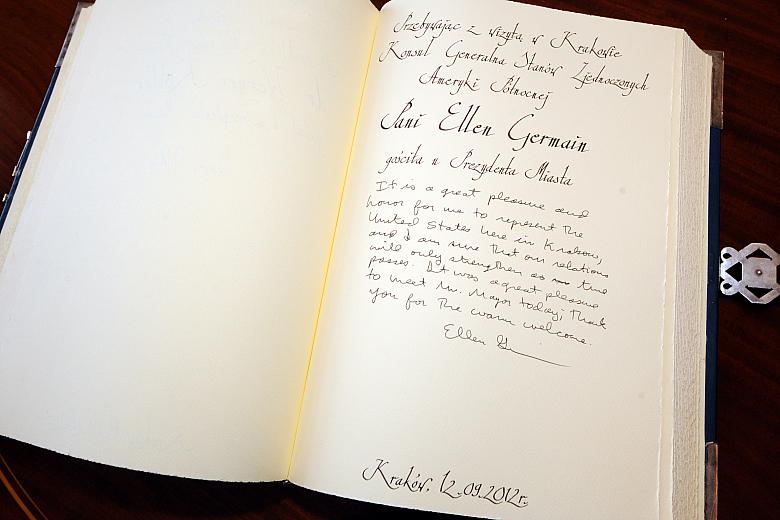 Przebywając z wizytą w Krakowie
Konsul Generalna Stanów Zjednoczonych
Ameryki Północnej
Pani Ellen Germain
gościła u Prezydenta Miasta
It is a great pleasure and
honor for me to represent the
United States here in Krakow,
and I am sure that our relations
will only strengthen as time
passes. It was a great pleasure
to meet Mr. Mayor today; thank
you for the warm welcome.
Ellen
Kraków, 12.09.2012r.